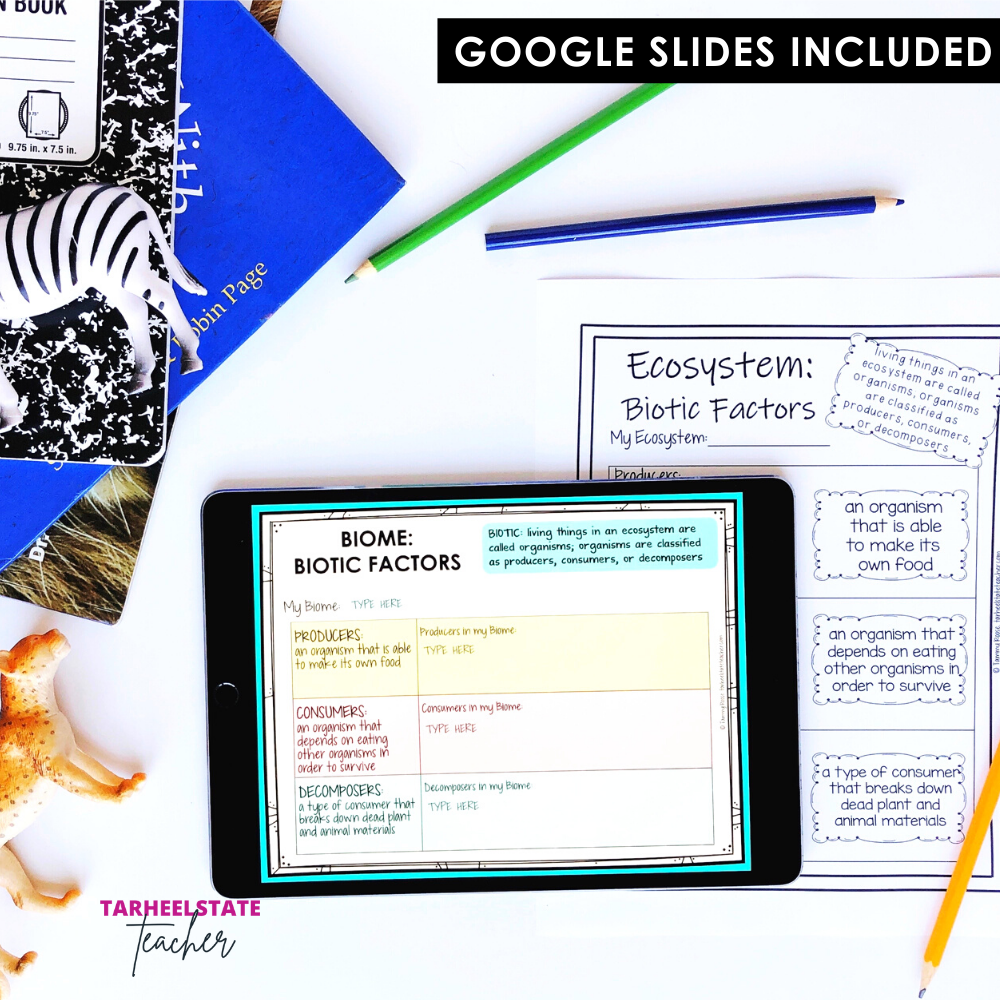 GOOGLE SLIDES INCLUDED
N BOOK
9.75"
7.5"
9.75 in. x 7.5 in.
With
Robin Page
Ecosystem:
Biotic Factors
My Ecosystem:
living things in an
ecosystem are called
organisms, organisms
are classified as
producers, consumers,
or decomposers
Producers:
an organism
that is able
to make its
own food
an organism that
depends on eating
other organisms in
order to survive
a type of consumer
that breaks down
dead plant and
animal materials
© Tammy Roose, tarheelstateteacher.com
BIOME:
BIOTIC FACTORS
BIOTIC: living things in an ecosystem are
called organisms; organisms are classified
as producers, consumers, or decomposers
My Biome: TYPE HERE
PRODUCERS:
an organism that is able
to make its own food
Producers in my Biome:
TYPE HERE
CONSUMERS:
an organism that
depends on eating
other organisms in
order to survive
Consumers in my Biome:
TYPE HERE
DECOMPOSERS:
a type of consumer that
breaks down dead plant
and animal materials
Decomposers in my Biome:
TYPE HERE
© Tammy Roose, tarheelstateteacher.com
TARHEELSTATE
teacher